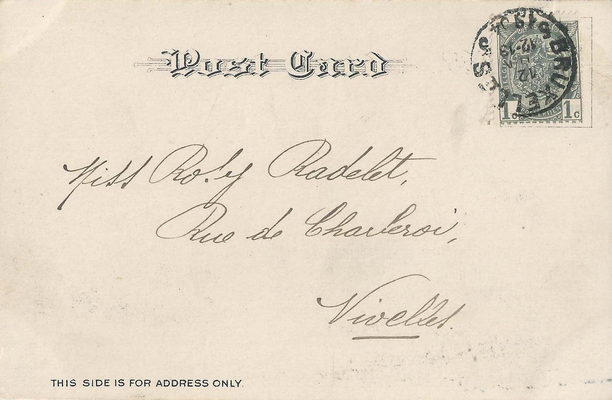 Post Card
BRUXELLES
1904
12-13
12
1c 1c
Miss Rosy Radelet,
Rue de Charleroi,
Nivelles.
THIS SIDE IS FOR ADDRESS ONLY.